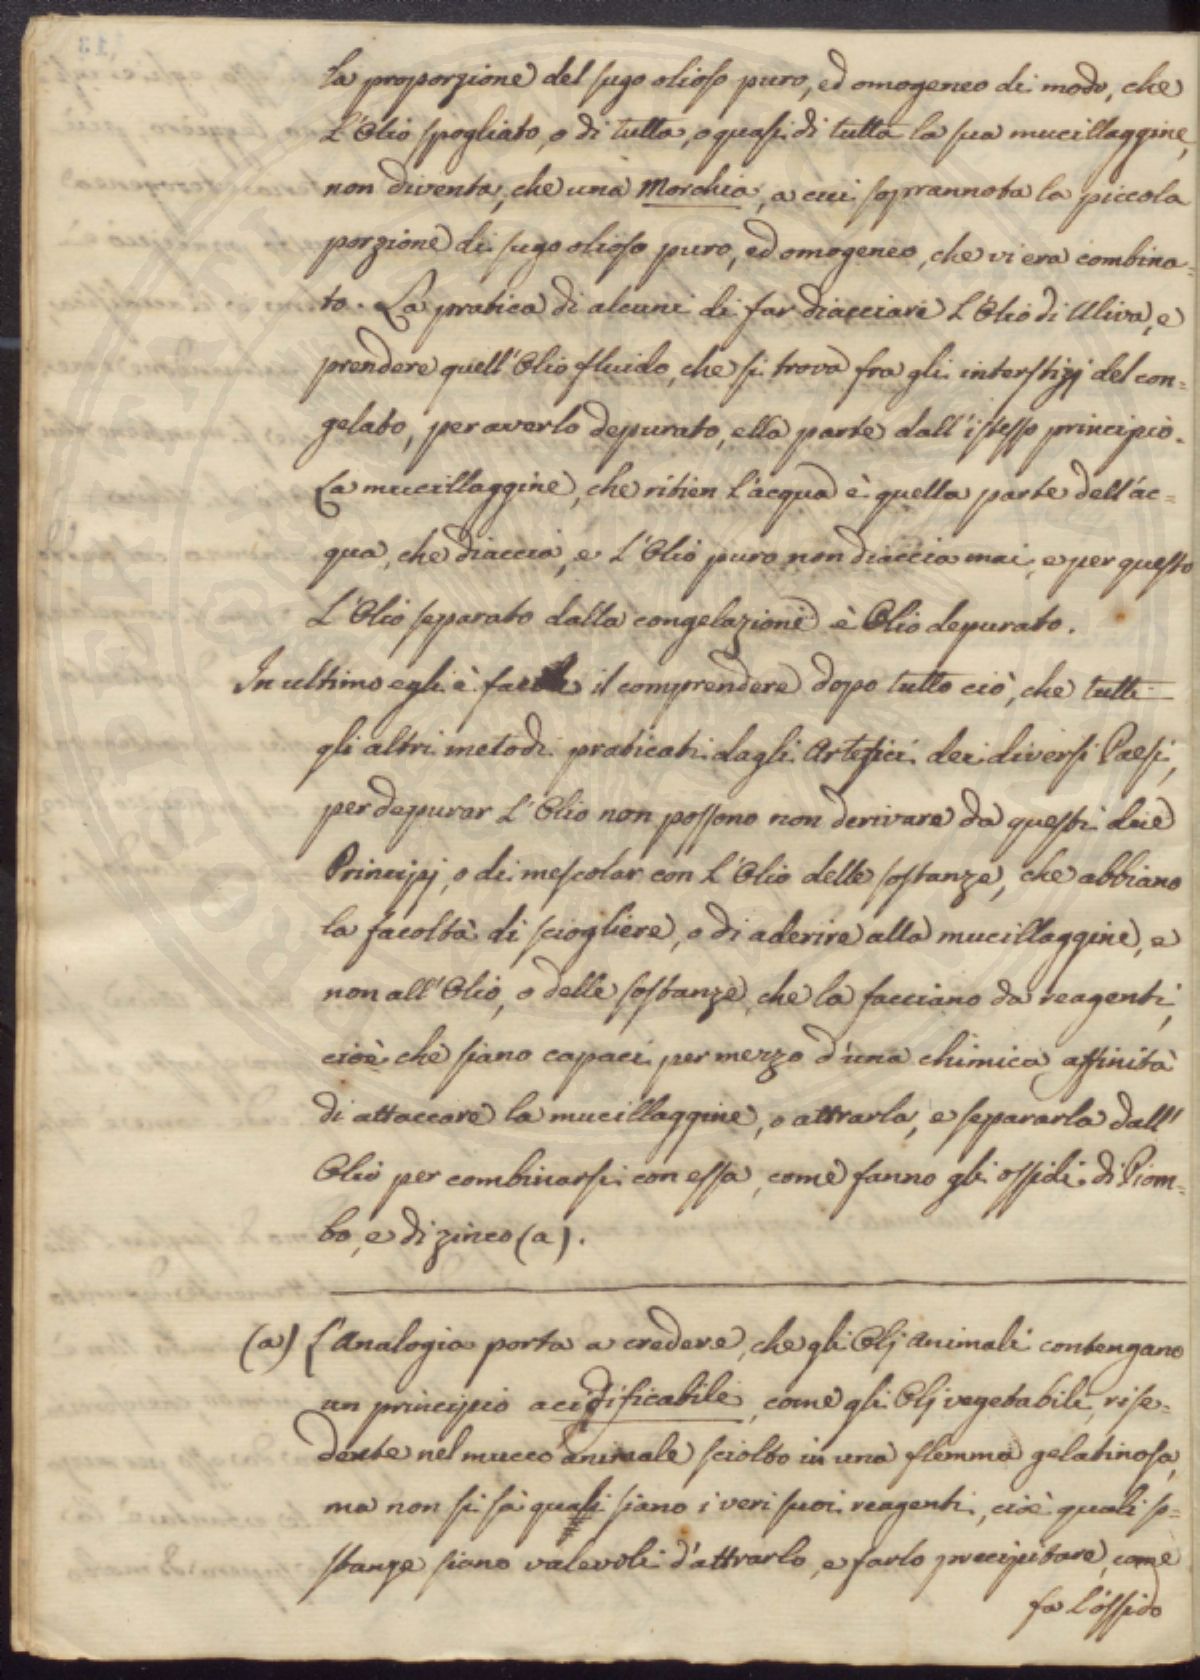 la proporzione del sugo olioso puro, ed omogeneo di modo, che
l'Olio spogliato, o di tutta, o quasi di tutta la sua mucillaggine,
non diventa, che una Morchia, a cui soprannota la piccola
porzione di sugo olioso puro, ed omogeneo, che vi era combina=
to. La pratica di alcuni di far diacciare l'Olio di Uliva, e
prendere quell'Olio fluido, che si trova fra gli interstizj del con=
gelato, per averlo depurato, ella parte dall'istesso principio.
La mucillaggine, che ritien l'acqua è quella parte dell'ac=
qua, che diaccia, e l'Olio puro non diaccia mai, e per questo
l'Olio separato dalla congelazione è Olio depurato.
In ultimo egli è facile il comprendere dopo tutto ciò, che tutti
gli altri metodi praticati dagli Artefici dei diversi Paesi,
per depurar l'Olio non possono non derivare da questi due
Principj, o di mescolar con l'Olio delle sostanze, che abbiano
la facoltà di sciogliere, o di aderire alla mucillaggine, e
non all'Olio, o delle sostanze che la facciano da reagenti,
cioè che siano capaci per mezzo d'una chimica affinità
di attaccare la mucillaggine, o attrarla, e separarla dall'
Olio per combinarsi con essa, come fanno gli ossidi di Piom=
bo, e di zinco (a).
(a) L'Analogia porta a credere, che gli Olj animali contengano
un principio acidificabile, come gli Olj vegetabili, rise=
dente nel mucco animale sciolto in una flemma gelatinosa,
ma non si sà quali siano i veri suoi reagenti, cioè quali so=
stanze siano valevoli d'attrarlo, e farlo precipitare, come
fa l'ossido